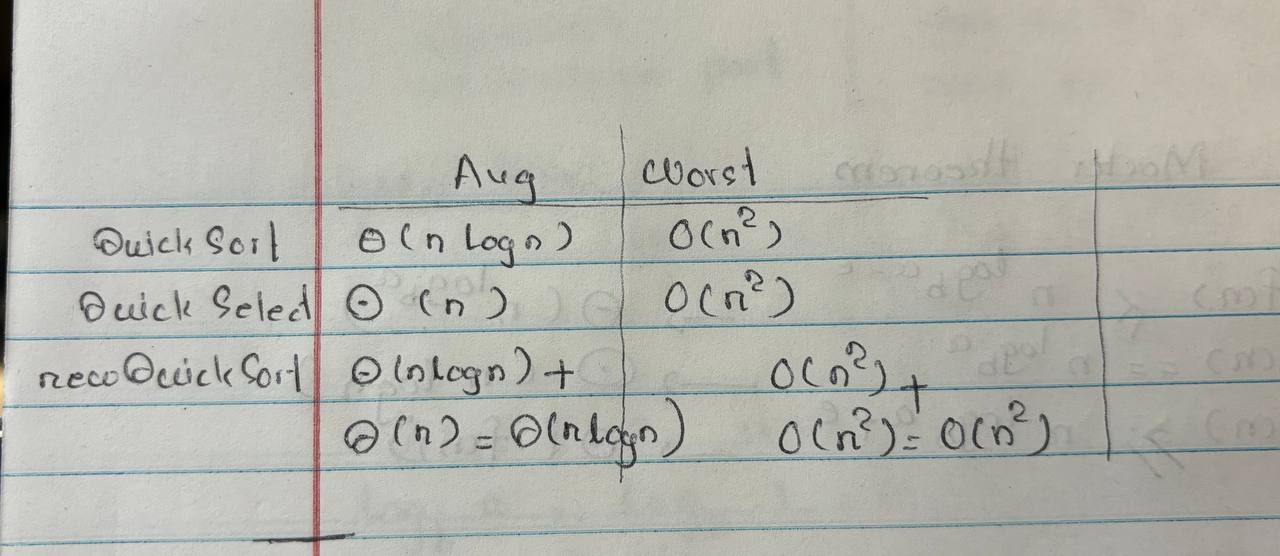 Avg Worst
QuickSort Θ(n logn) O(n²)
Quick Select Θ (n) O(n²)
newQuickSort Θ(nlogn) + O(n²) +
Θ(n) = Θ(nlogn) O(n²) = O(n²)